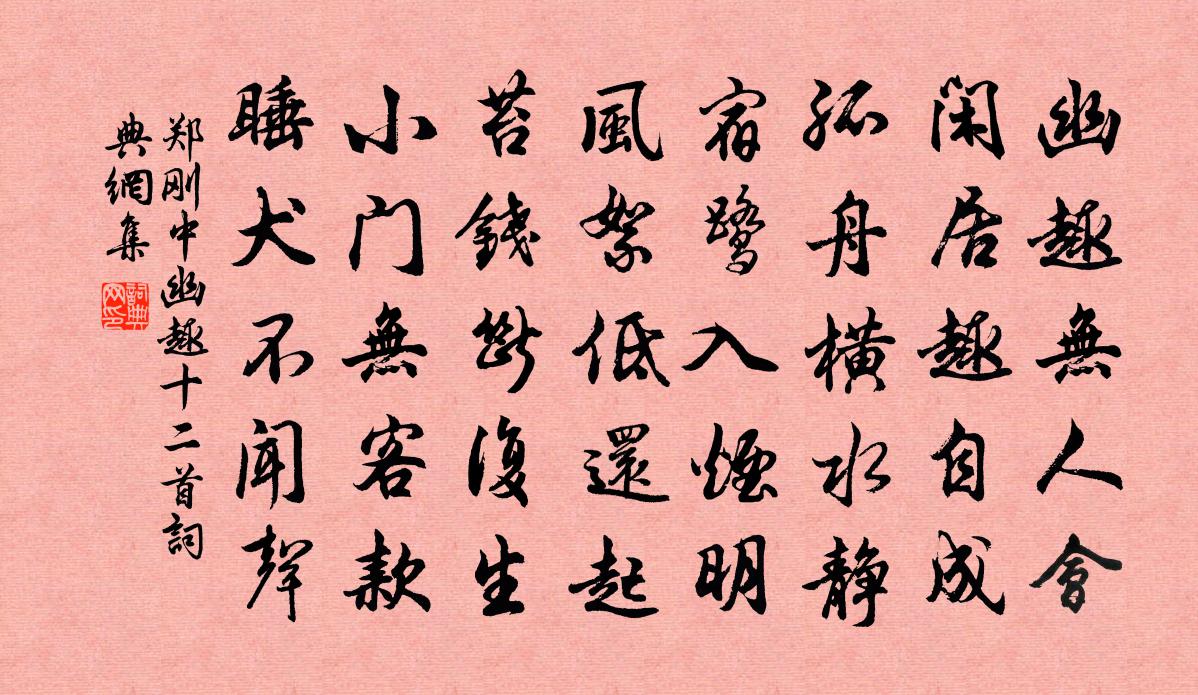 幽趣無人會
閑居趣自成
孤舟橫水静
宿鷺入煙明
風絮低還起
苔錢斷復生
小门無客款
睡犬不闻聲
郑刚中幽趣十二首詞
典網集
詞典网印